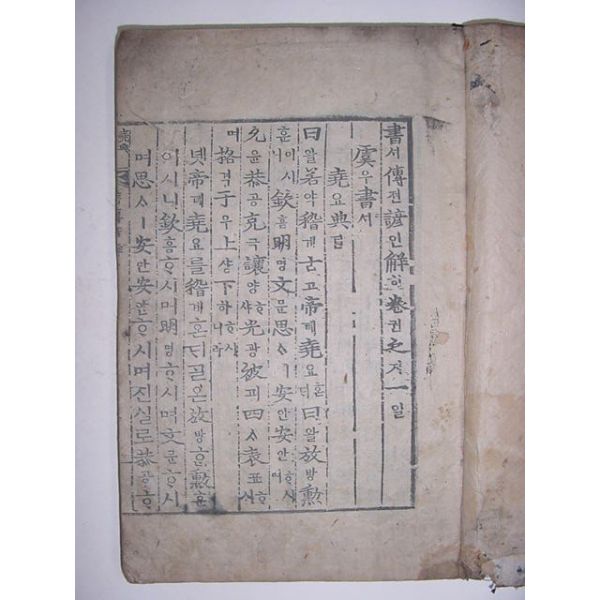 書셔傳젼諺언解ᄒᆡ卷권之지一일
虞우書셔
堯요典뎐
曰왈若약稽계古고帝뎨堯요ᄒᆞᆫᄃᆡ曰왈放방勳훈
이시니欽흠明명文문思ᄉᆞㅣ安안安안ᄒᆞ시며
允윤恭공克극讓양ᄒᆞ샤光광被피四ᄉᆞ表표ᄒᆞ시며
格격于우上샹下하ᄒᆞ시니라
녯帝뎨堯요를稽계혼ᄃᆡᄀᆞᆯ온放방ᄒᆞᆫ勳훈
이시니欽흠ᄒᆞ시며明명ᄒᆞ시며文문ᄒᆞ시
며思ᄉᆞㅣ安안安안ᄒᆞ시며진실로恭공ᄒᆞ